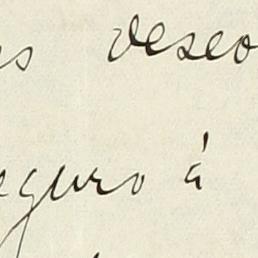 es deseo
eguro á